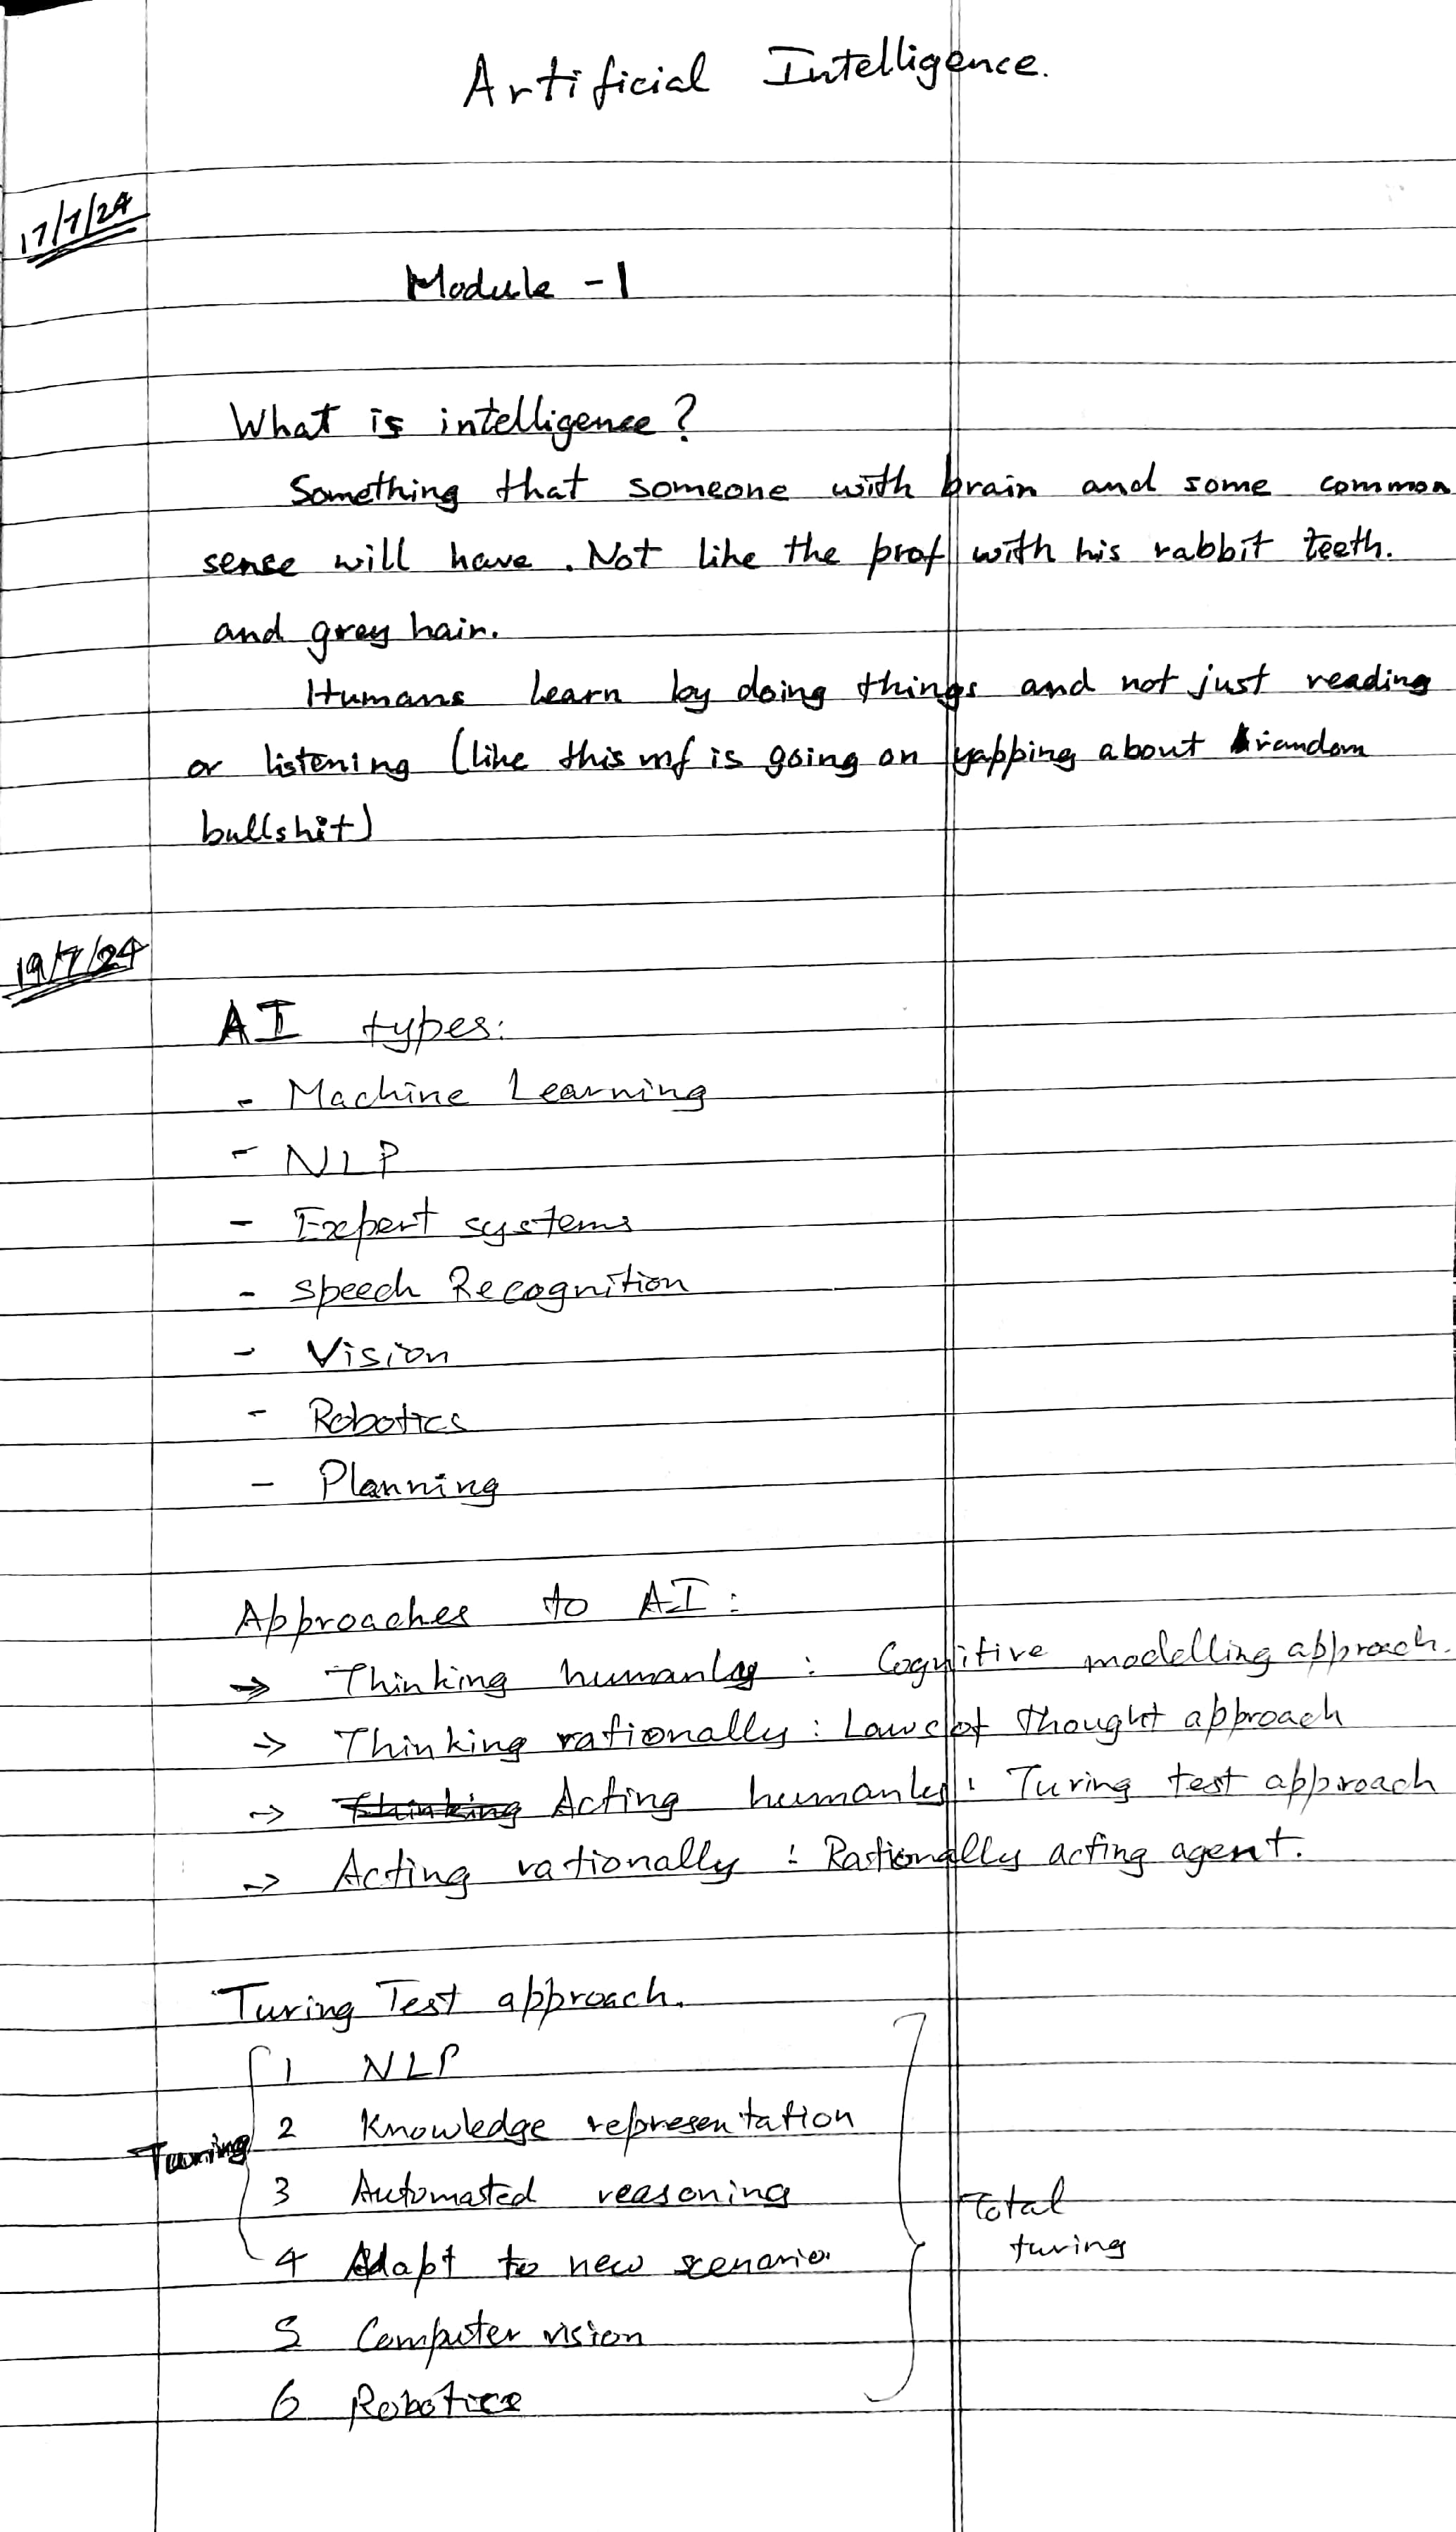 Artificial Intelligence.
17/7/24
Module - 1
What is intelligence?
Something that someone with brain and some common
sense will have. Not like the prof with his rabbit teeth.
and grey hair.
Humans learn by doing things and not just reading
or listening (like this mf is going on yapping about random
bullshit)
19/7/24
AI types:
- Machine Learning
- NLP
- Expert systems
- Speech Recognition
- Vision
- Robotics
- Planning
Approaches to AI:
→ Thinking humanly : Cognitive modelling approach.
→ Thinking rationally : Laws of thought approach
→ Thinking Acting humanly : Turing test approach
→ Acting rationally : Rationally acting agent.
Turing Test approach.
1 NLP
2 Knowledge representation
Turing
3 Automated reasoning
Total
4 Adapt to new scenario
turing
5 Computer vision
6 Robotics